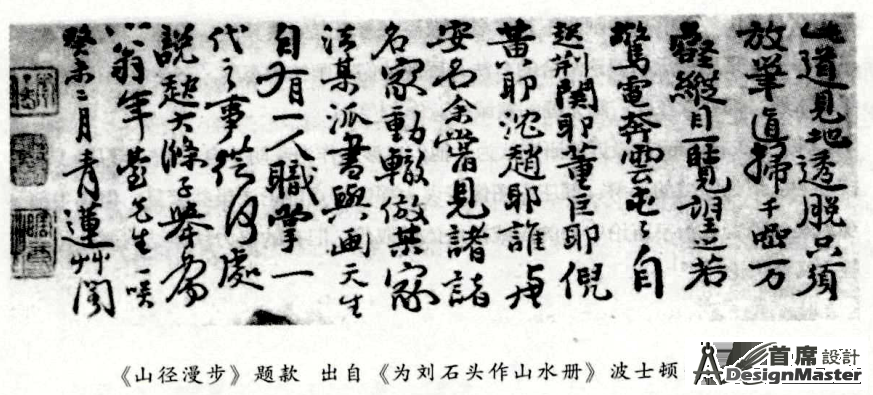 此道見地透脫只須
放筆直掃千巖万
壑縱目一覽望之若
驚電奔雲屯屯自
起荆關耶董巨耶倪
黃耶沈趙耶誰與
安名余嘗見諸諸
名家動輒倣某家
法某派書與画天生
自有一人職掌一
代之事從何處
說起大滌子舉
翁年臺先生一咲
癸未二月青蓮艸閣
《山径漫步》题款 出自《为刘石头作山水册》波士顿
首席設計
DesignMaster